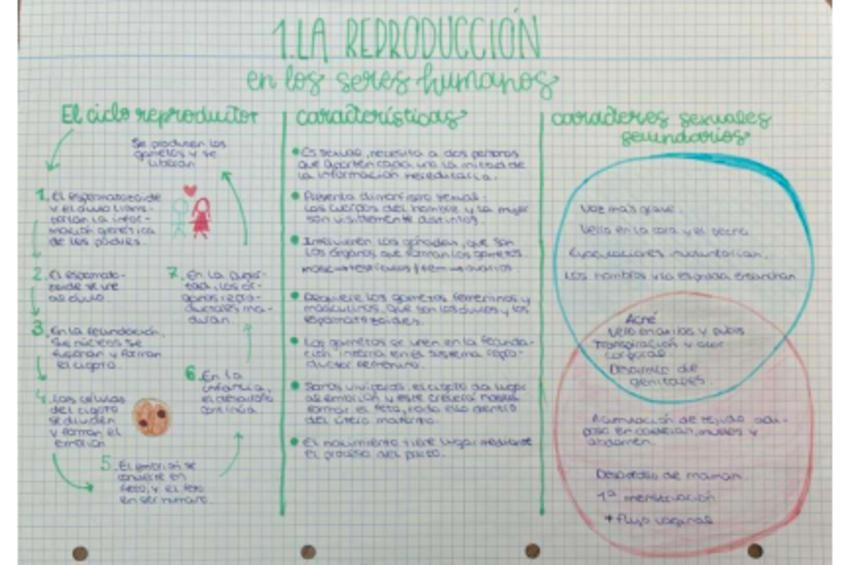 1. LA REPRODUCCIÓN
en los seres humanos
El ciclo reproductor
Se producen los
gametos y se
liberan
1. El espermatozoide
y el óvulo trans-
portan la infor-
mación genética
de los padres.
2. El espermato-
zoide se une
al óvulo.
3. En la fecundación,
sus núcleos se
fusionan y forman
el cigoto.
4. Las células
del cigoto
se dividen
y forman el
embrión
5. El embrión se
convierte en
feto, y el feto
en ser humano.
6. En la
infancia,
el desarrollo
continúa.
7. En la puber-
tad, los ór-
ganos repro-
ductores ma-
duran.
características
• Es sexual, necesita a dos personas
que aporten cada una la mitad de
la información hereditaria.
• Presenta dimorfismo sexual:
los cuerpos del hombre y la mujer
son visiblemente distintos.
• Intervienen las gónadas, que son
los órganos que forman los gametos.
masc→testículos / fem→ovarios
• Requiere los gametos femeninos y
masculinos, que son los óvulos y los
espermatozoides.
• Los gametos se unen en la fecunda-
ción interna en el sistema repro-
ductor femenino.
• Somos vivíparos, el cigoto da lugar
al embrión y este crecerá hasta
formar el feto, todo eso dentro
del útero materno.
• El nacimiento tiene lugar mediante
el proceso del parto.
caracteres sexuales
secundarios
Voz más grave.
Vello en la cara y el pecho.
Eyaculaciones involuntarias.
Los hombros y la espalda ensanchan.
Acné
Vello en axilas y pubis
Transpiración y olor
corporal
Desarrollo de
genitales
Acumulación de tejido adi-
poso en caderas, muslos y
abdomen.
Desarrollo de mamas.
1ª menstruación
+ flujo vaginal